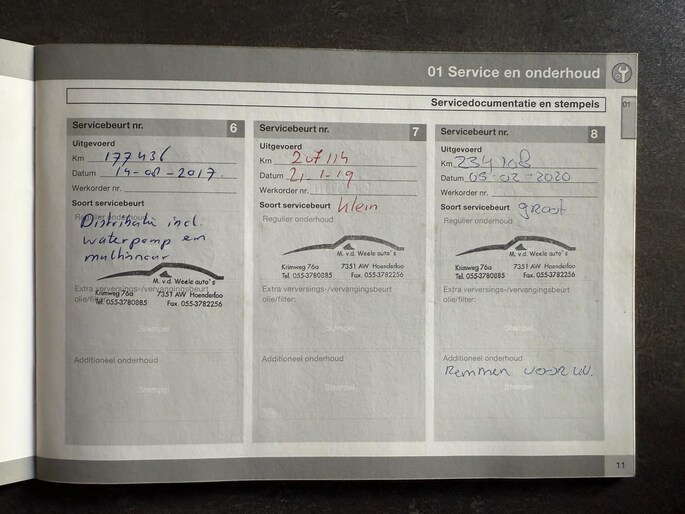 01 Service en onderhoud
01
Servicedocumentatie en stempels
Servicebeurt nr. 6
Uitgevoerd
Km 177436
Datum 14-08-2017
Werkorder nr.
Soort servicebeurt
Regulier onderhoud
Distributie incl.
waterpomp en
multisnaar
M. v.d. Weele auto's
Krimweg 76a 7351 AW Hoenderloo
Tel. 055-3780085 Fax. 055-3782256
Extra verversings-/vervangingsbeurt
olie/filter:
Stempel
Additioneel onderhoud
Stempel
Servicebeurt nr. 7
Uitgevoerd
Km 207114
Datum 21-1-19
Werkorder nr.
Soort servicebeurt klein
Regulier onderhoud
M. v.d. Weele auto's
Krimweg 76a 7351 AW Hoenderloo
Tel. 055-3780085 Fax. 055-3782256
Extra verversings-/vervangingsbeurt
olie/filter:
Stempel
Additioneel onderhoud
Stempel
Servicebeurt nr. 8
Uitgevoerd
Km 234108
Datum 05-02-2020
Werkorder nr.
Soort servicebeurt groot
Regulier onderhoud
M. v.d. Weele auto's
Krimweg 76a 7351 AW Hoenderloo
Tel. 055-3780085 Fax. 055-3782256
Extra verversings-/vervangingsbeurt
olie/filter:
Stempel
Additioneel onderhoud
Remmen voor
Stempel
11